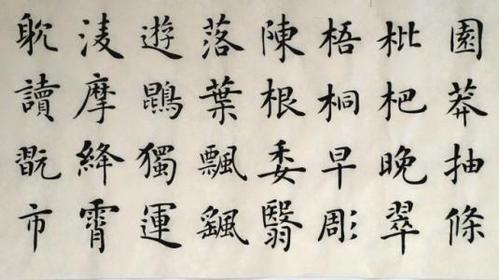 園莽抽條
枇杷晚翠
梧桐早彫
陳根委翳
落葉飄颻
遊鵾獨運
淩摩絳霄
耽讀翫市